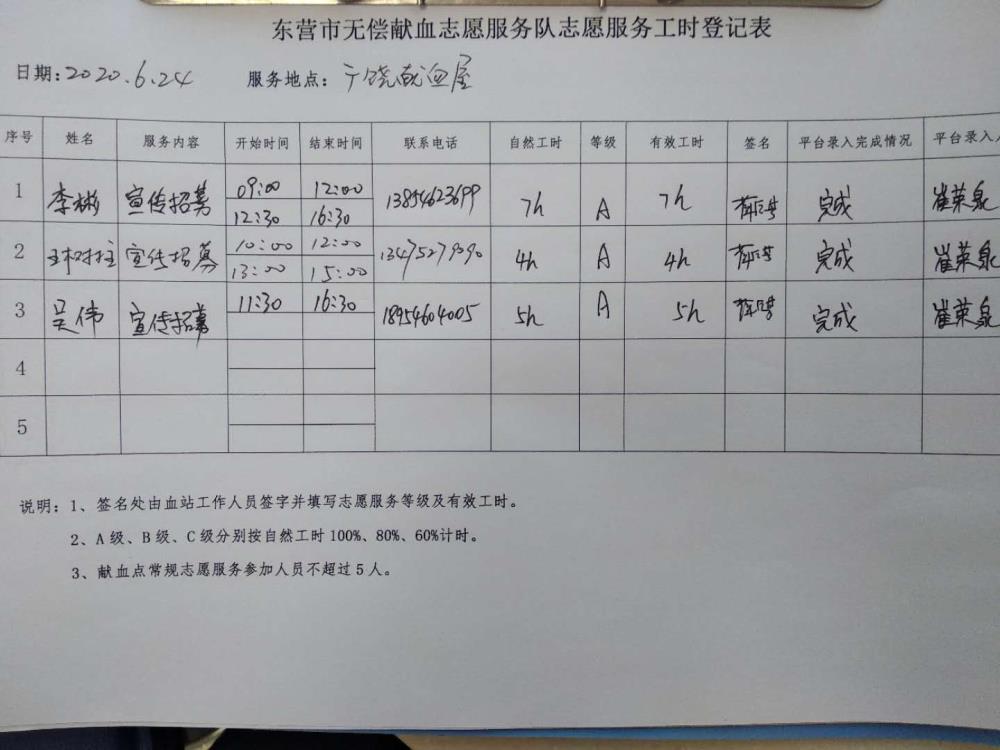 东营市无偿献血志愿服务队志愿服务工时登记表
日期:2020.6.24 服务地点: 广饶献血屋
序号 姓名 服务内容 开始时间 结束时间 联系电话 自然工时 等级 有效工时 签名 平台录入完成情况 平台录入
1 李彬 宣传招募 09:00 12:00 13854623699 7h A 7h 完成 崔荣泉
12:30 16:30
2 王树柱 宣传招募 10:00 12:00 13475279090 4h A 4h 完成 崔荣泉
13:00 15:00
3 吴伟 宣传招募 11:30 16:30 18954604005 5h A 5h 完成 崔荣泉
4
5
说明: 1、签名处由血站工作人员签字并填写志愿服务等级及有效工时。
2、A级、B级、C级分别按自然工时100%、80%、60%计时。
3、献血点常规志愿服务参加人员不超过5人。